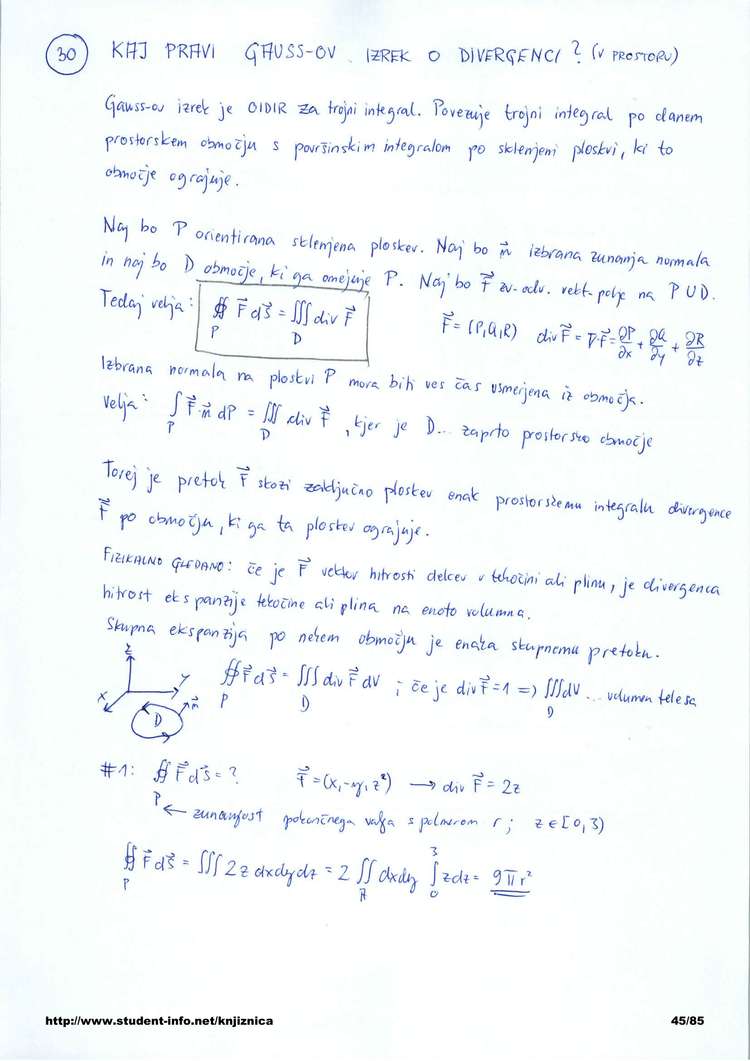 30 KAJ PRAVI GAUSS-OV IZREK O DIVERGENCI? (V PROSTORU)
Gauss-ov izrek je za trojni integral. Povezuje trojni integral po danem
prostorskem območju s površinskim integralom po sklenjeni ploskvi, ki to
območje ograjuje.
Naj bo P orientirana sklenjena ploskev. Naj bo n⃗ izbrana zunanja normala
in naj bo D območje, ki ga omejuje P. Naj bo F⃗ zv. odv. vekt. polje na P∪D.
Tedaj velja: ∯_P F⃗ dS⃗ = ∭_D div F⃗   F⃗ = (P,Q,R)   div F⃗ = ∇·F⃗ = ∂P/∂x + ∂Q/∂y + ∂R/∂z
Izbrana normala na ploskvi P mora biti ves čas usmerjena iz območja.
Velja: ∫_P F⃗·n⃗ dP = ∭_D div F⃗, kjer je D... zaprto prostorsko območje
Torej je pretok F⃗ skozi zaključno ploskev enak prostorskemu integralu divergence
F⃗ po območju, ki ga ta ploskev ograjuje.
FIZIKALNO GLEDANO: če je F⃗ vektor hitrosti delcev v tekočini ali plinu, je divergenca
hitrost ekspanzije tekočine ali plina na enoto volumna.
Skupna ekspanzija po nekem območju je enaka skupnemu pretoku.
z
x y n⃗ D
∯_P F⃗ dS⃗ = ∭_D div F⃗ dV ; če je div F⃗ = 1 => ∭_D dV ... volumen telesa
#1: ∯_P F⃗ dS⃗ = ?   F⃗ = (x, -y, z²) → div F⃗ = 2z
← zunanjost pokončnega valja s polmerom r ; z ∈ [0,3)
∯_P F⃗ dS⃗ = ∭ 2z dxdydz = 2 ∬_A dxdy ∫_0^3 zdz = 9πr²
http://www.student-info.net/knjiznica 45/85